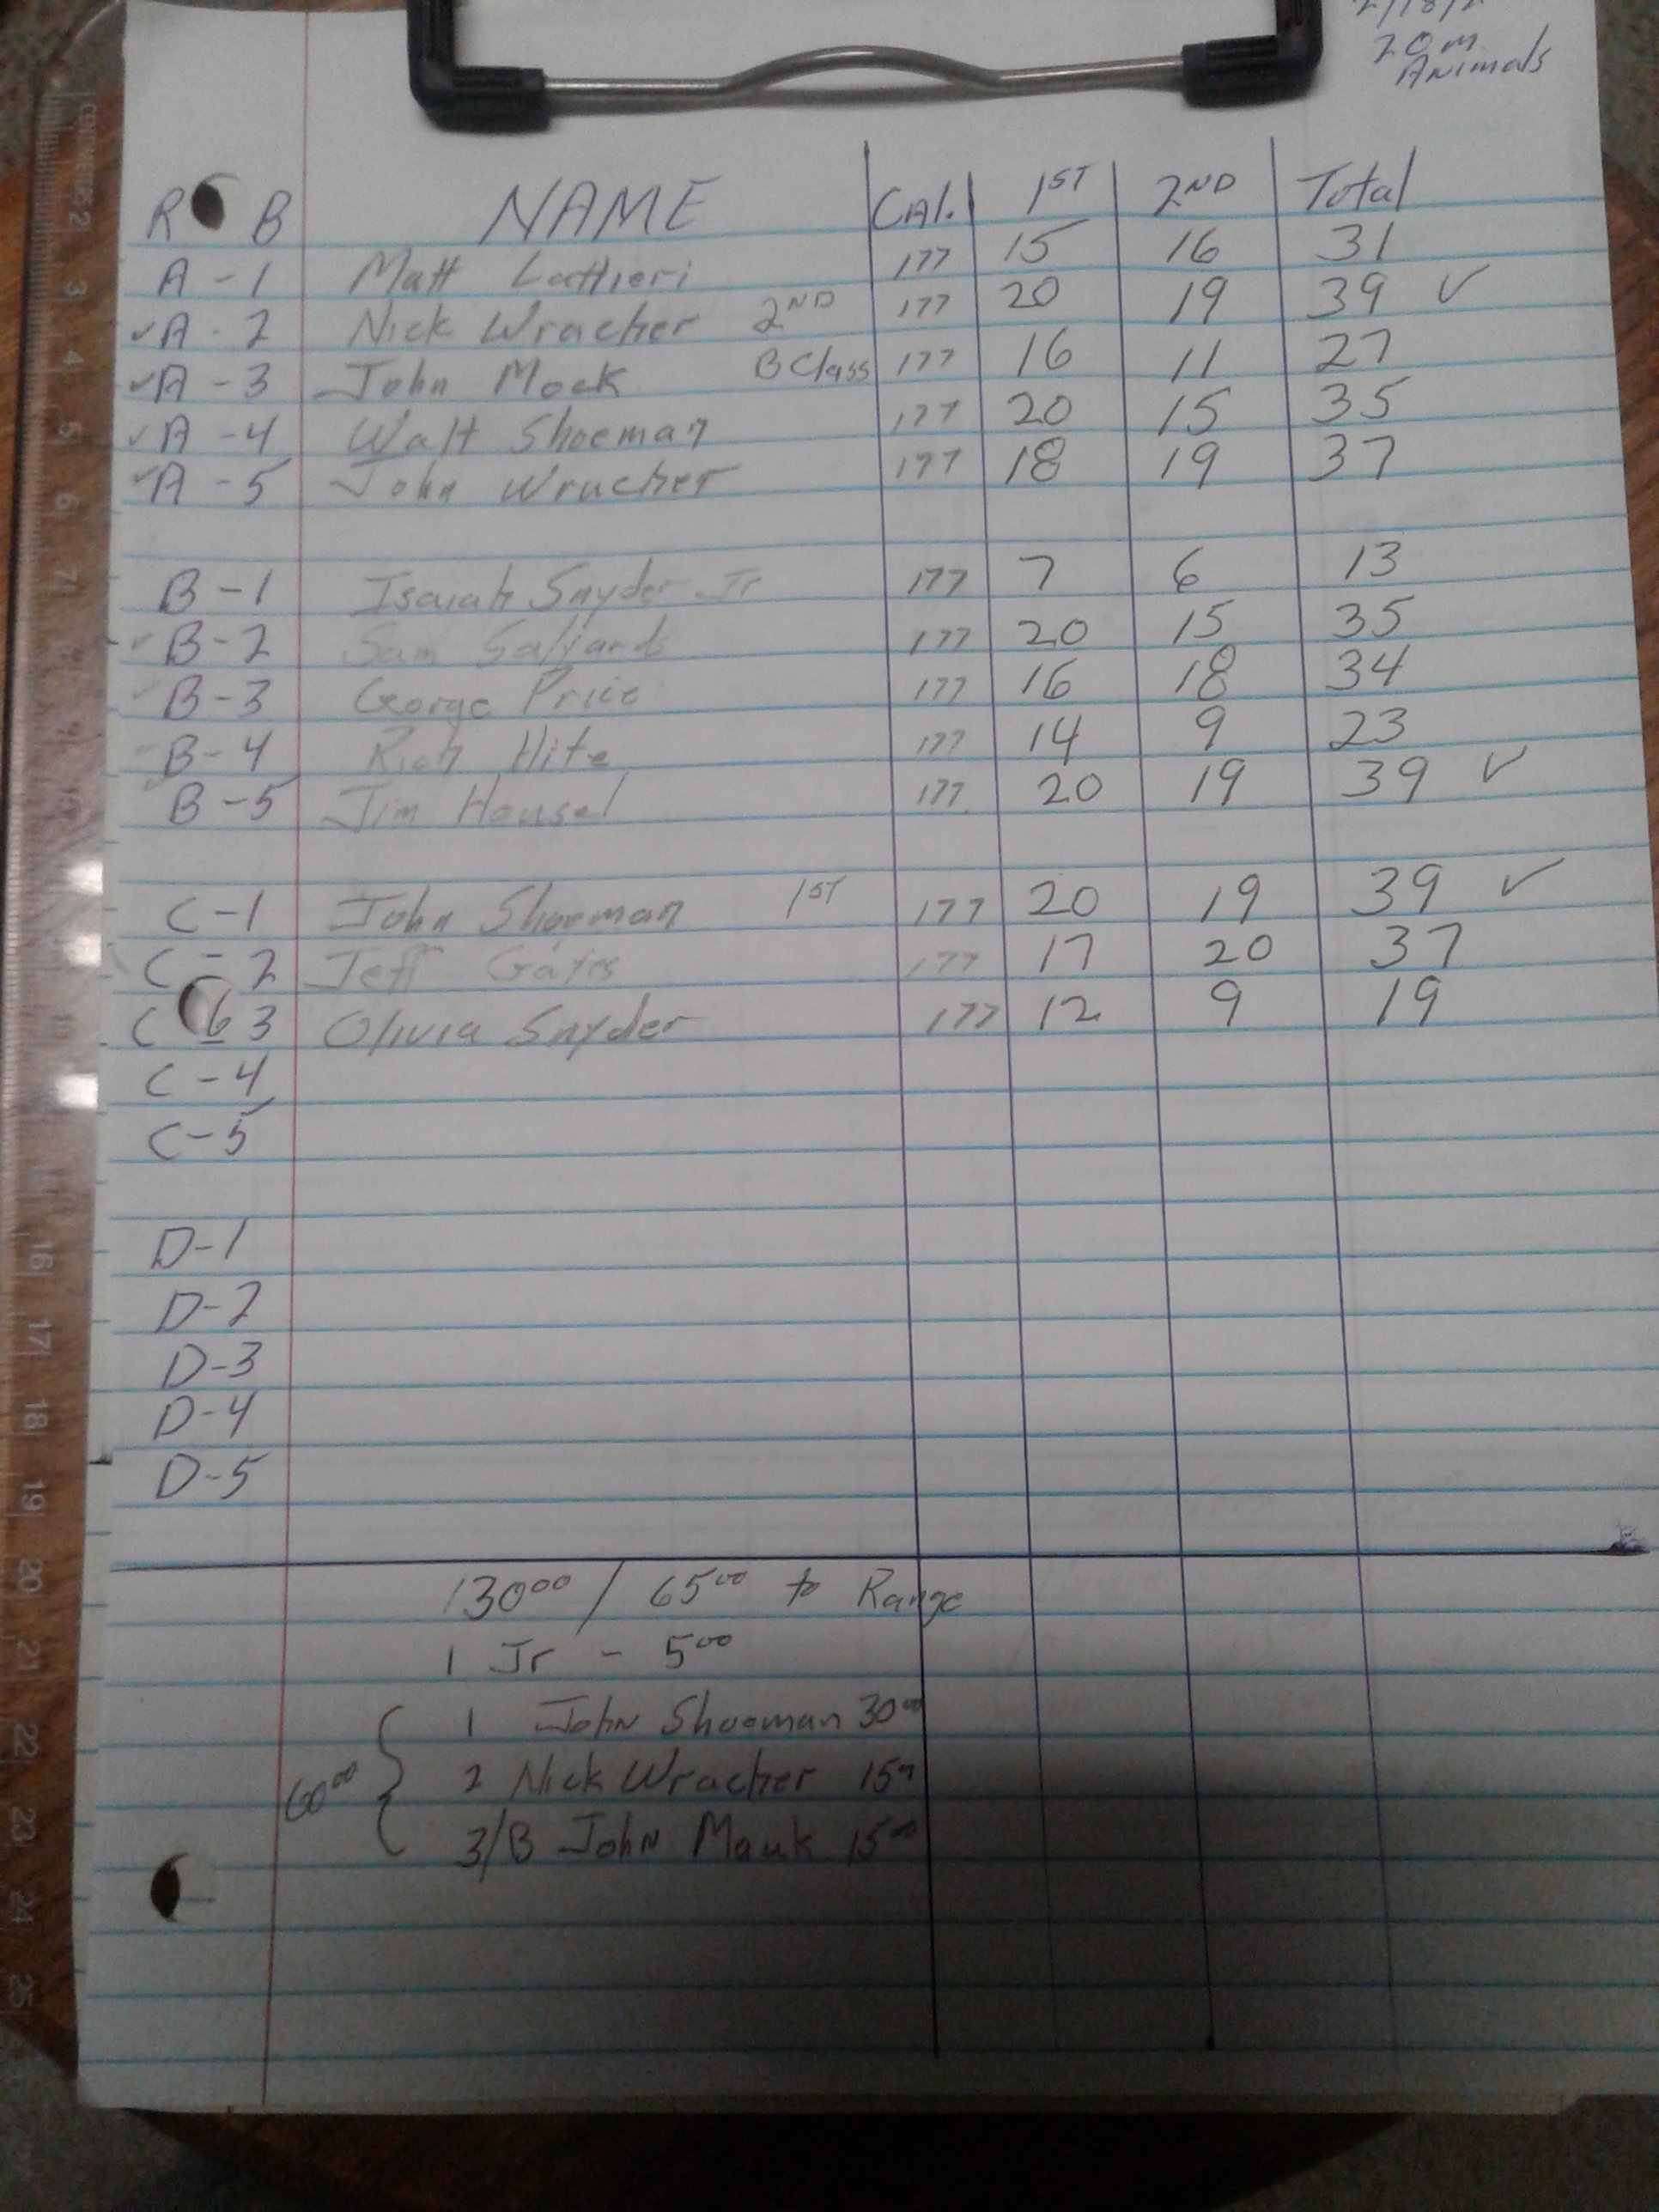 20m
Animals
R B NAME CAL. 1ST 2ND Total
A-1 Matt Lattieri 177 15 16 31
✓A-2 Nick Wracher 2ND 177 20 19 39 ✓
✓A-3 John Mock B Class 177 16 11 27
✓A-4 Walt Shoeman 177 20 15 35
✓A-5 John Wracher 177 18 19 37
B-1 Isaiah Snyder Jr 177 7 6 13
✓B-2 Sam Saljards 177 20 15 35
✓B-3 George Price 177 16 18 34
B-4 Rich Hite 177 14 9 23
B-5 Jim Housel 177 20 19 39 ✓
C-1 John Shoeman 1ST 177 20 19 39 ✓
C-2 Jeff Gates 177 17 20 37
C 3 Olivia Snyder 177 12 9 19
C-4
C-5
D-1
D-2
D-3
D-4
D-5
13000 / 6500 to Range
1 Jr - 500
1 John Shoeman 3000
6000 2 Nick Wracher 15
3/B John Mauk 1500
CENTIMETERS 2 3 4 5 6 7 16 17 18 19 20 21 22 23 24 25